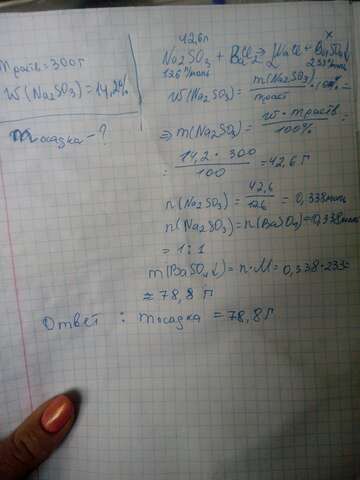 m раств = 300г
w(Na₂SO₃) = 14,2%
m осадка - ?
42,6г
x
Na₂SO₃ + BaCl₂ → 2NaCl + BaSO₄↓
126 г/моль
233 г/моль
w(Na₂SO₃) = m(Na₂SO₃) / m раст · 100% =
⇒ m(Na₂SO₃) = w · m раств / 100% =
= 14,2 · 300 / 100 = 42,6 г
n(Na₂SO₃) = 42,6 / 126 = 0,338 моль
n(Na₂SO₃) = n(BaSO₄) = 0,338 моль
= 1:1
m(BaSO₄↓) = n · M = 0,338 · 233 =
≈ 78,8 г
Ответ : m осадка = 78,8 г